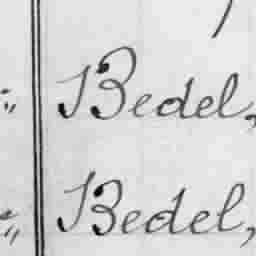 Bedel,
Bedel,